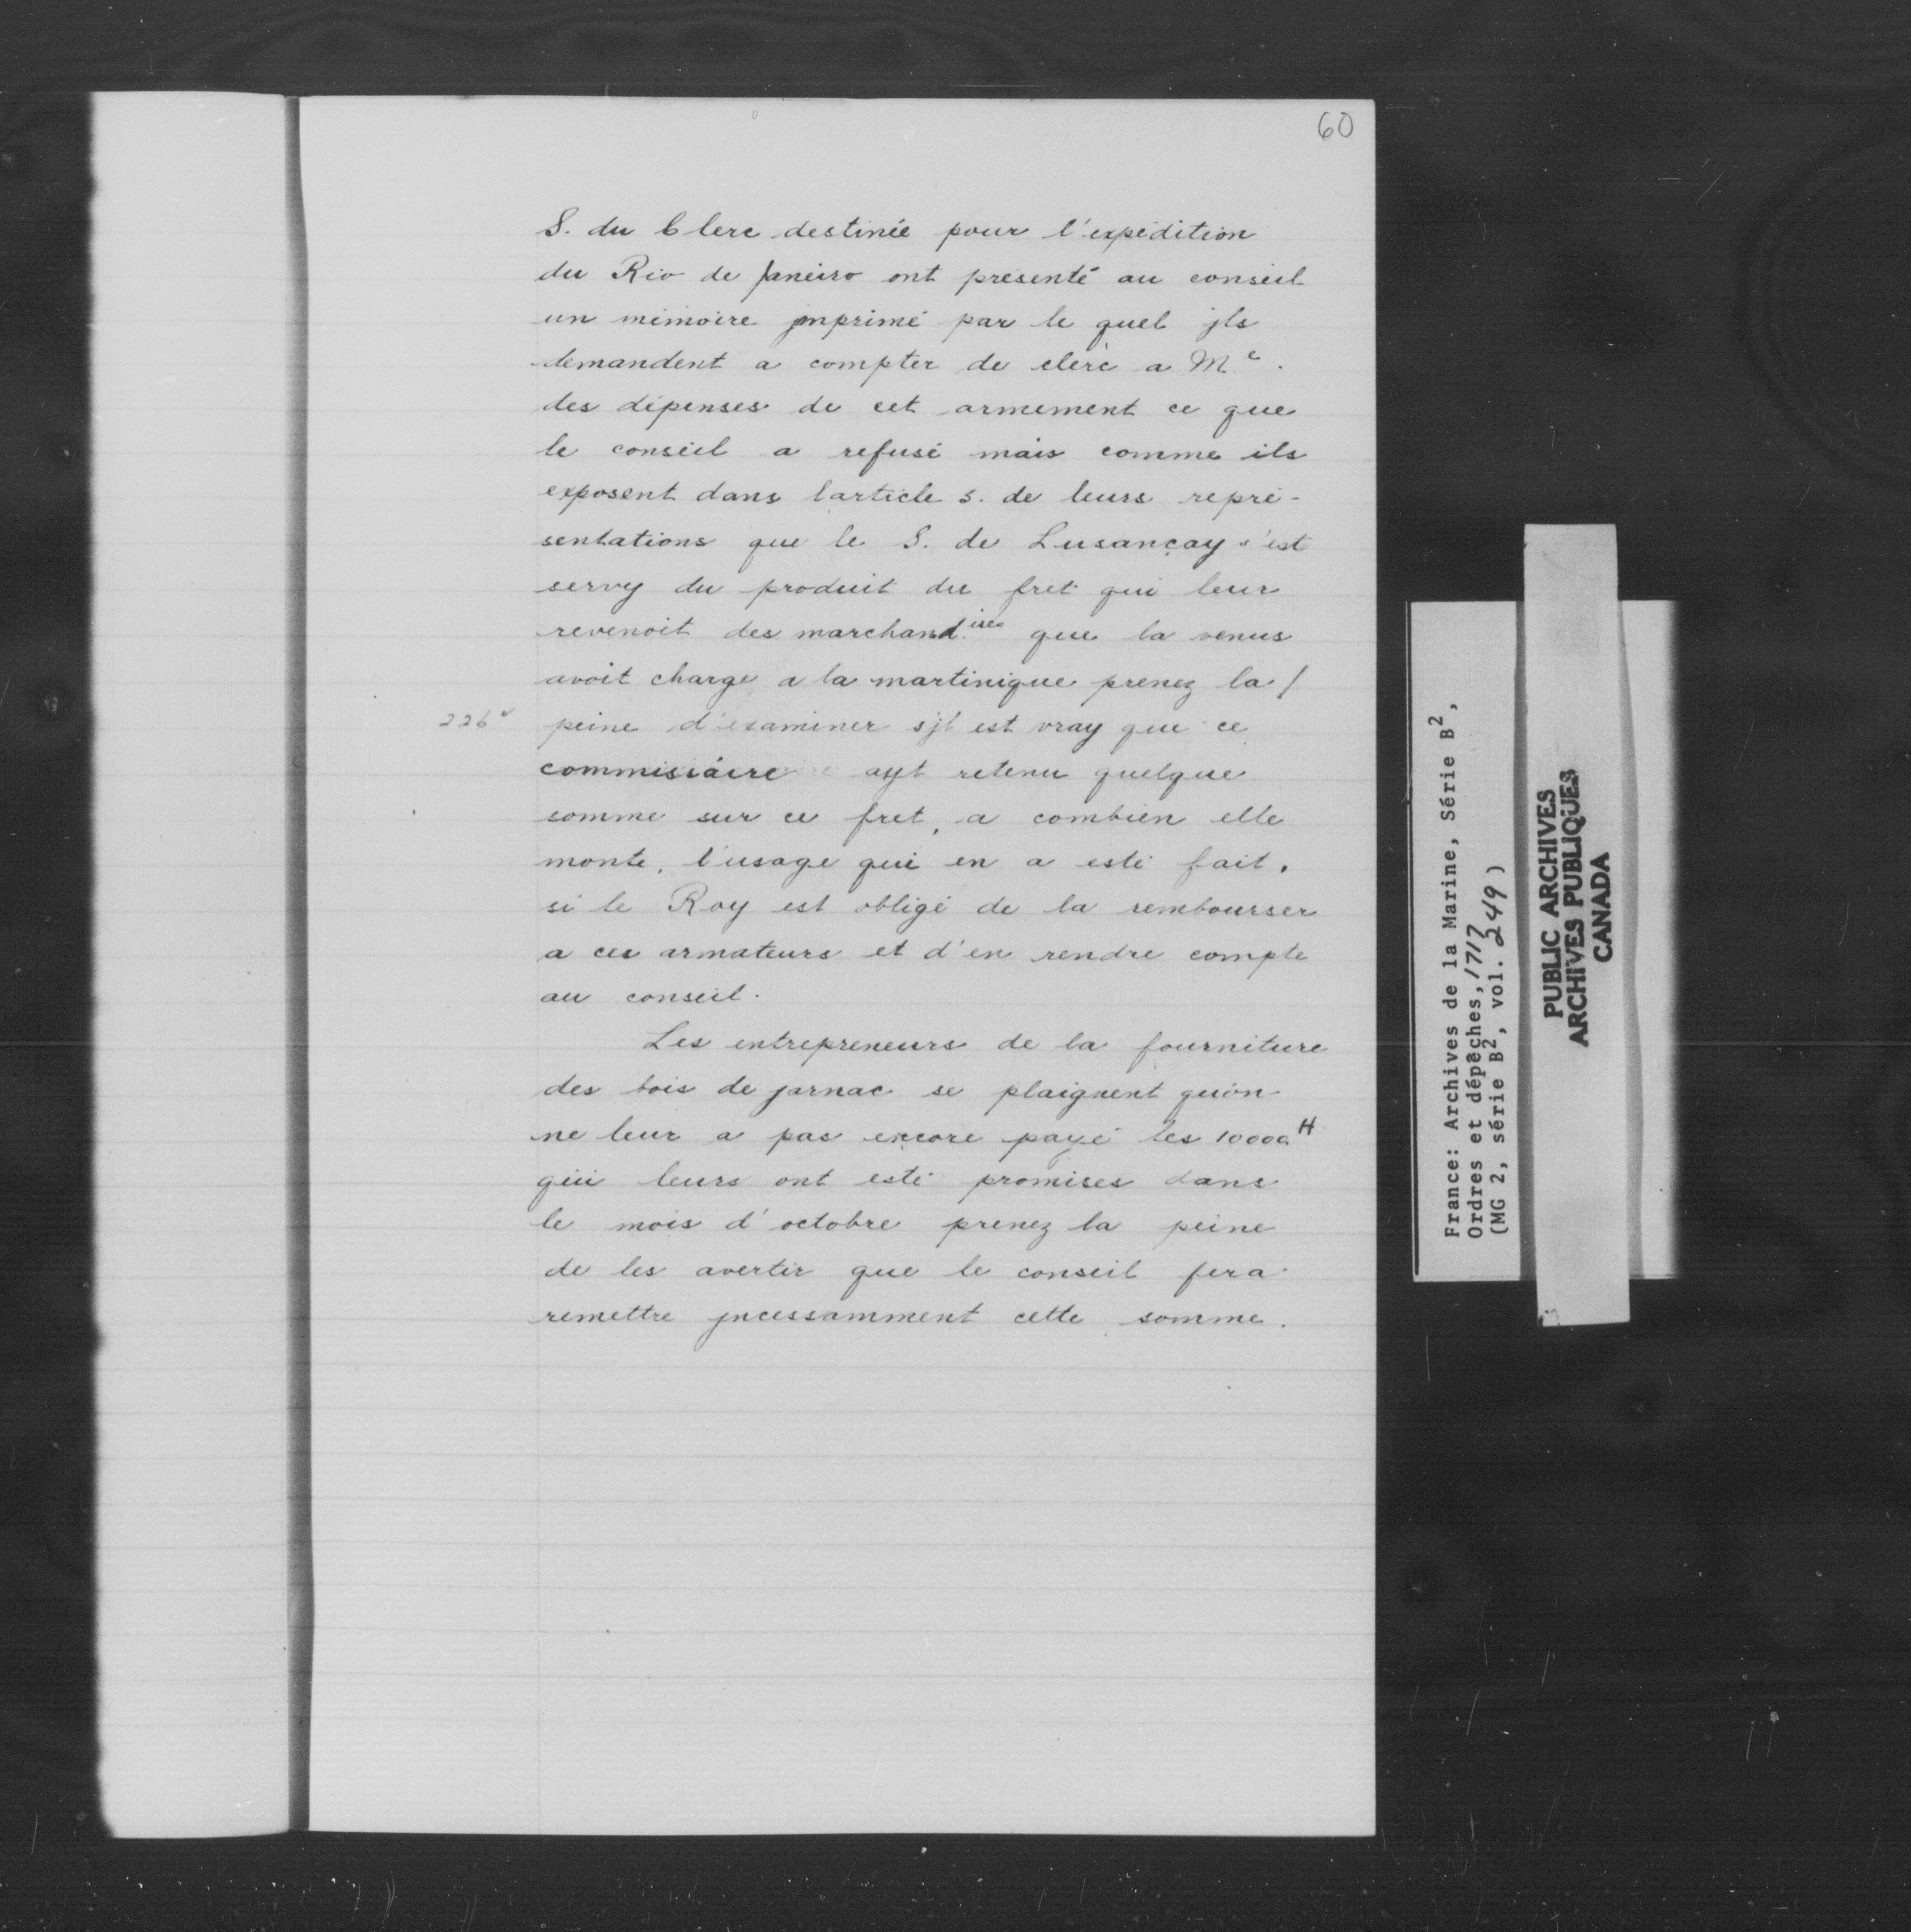 60
S. du Clerc destinée pour l'expédition
du Rio de Janeiro ont présenté au conseil
un mémoire jmprimé par le quel jls
demandent a compter de clerc a Me.
des dépenses de cet armement ce que
le conseil a refusé mais comme ils
exposent dans larticle 5. de leurs repré-
sentations que le S. de Lusançay s'est
servy du produit du fret qui leur
revenoit des marchandises que la venus
avoit chargé a la martinique prenez la /
226v peine d'examiner sjl est vray que ce
commissaire ayt retenu quelque
somme sur ce fret, a combien elle
monte, l'usage qui en a esté fait,
si le Roy est obligé de la rembourser
a ces armateurs et d'en rendre compte
au conseil.
Les entrepreneurs de la fourniture
des bois de jarnac se plaignent qu'on
ne leur a pas encore payé les 10000 H
qui leurs ont esté promises dans
le mois d'octobre prenez la peine
de les avertir que le conseil fera
remettre jncessamment cette somme.
France: Archives de la Marine, Série B2,
Ordres et dépêches, 1717
(MG 2, série B2, vol. 249)
PUBLIC ARCHIVES
ARCHIVES PUBLIQUES
CANADA